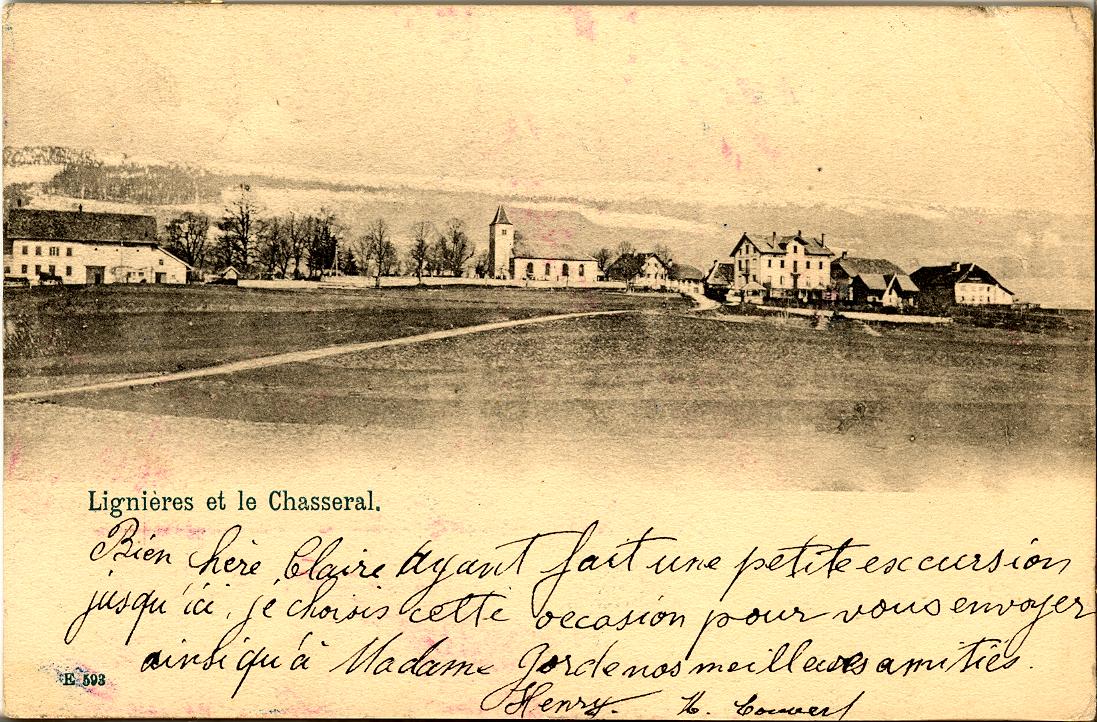 Lignières et le Chasseral.
Bien chère Claire Ayant fait une petite excursion
jusqu'ici, je choisis cette occasion pour vous envoyer
ainsi qu'à Madame nos meilleures amitiés.
Henry.
E 593